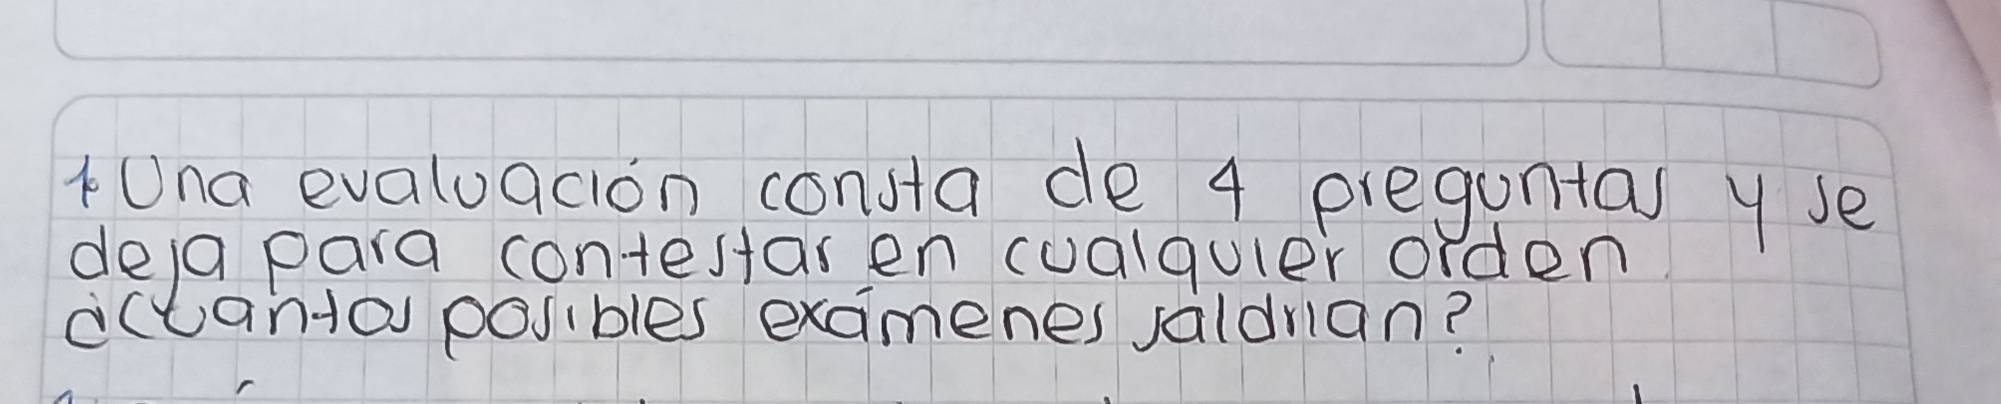 1. Una evaluación consta de 4 preguntas y se
deja para contestar en cualquier orden
¿Cuantos posibles exámenes saldrian?